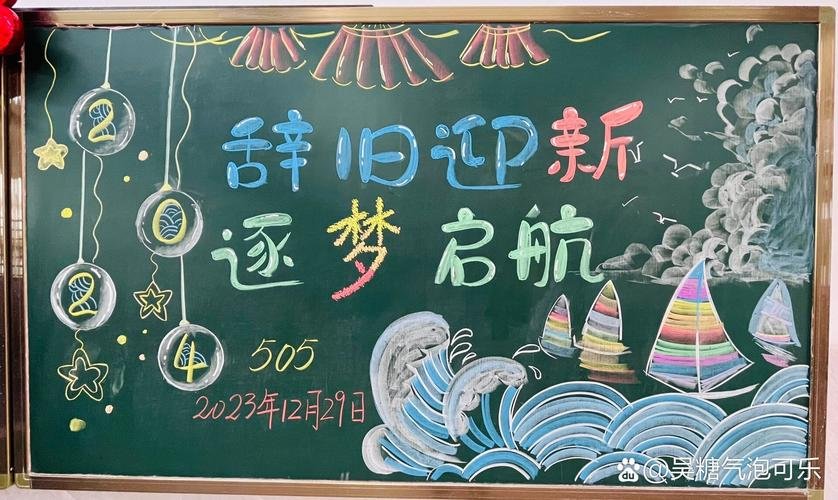 2
0
2
4
辞旧迎新
逐梦启航
505
2023年12月29日
du @吴糖气泡可乐